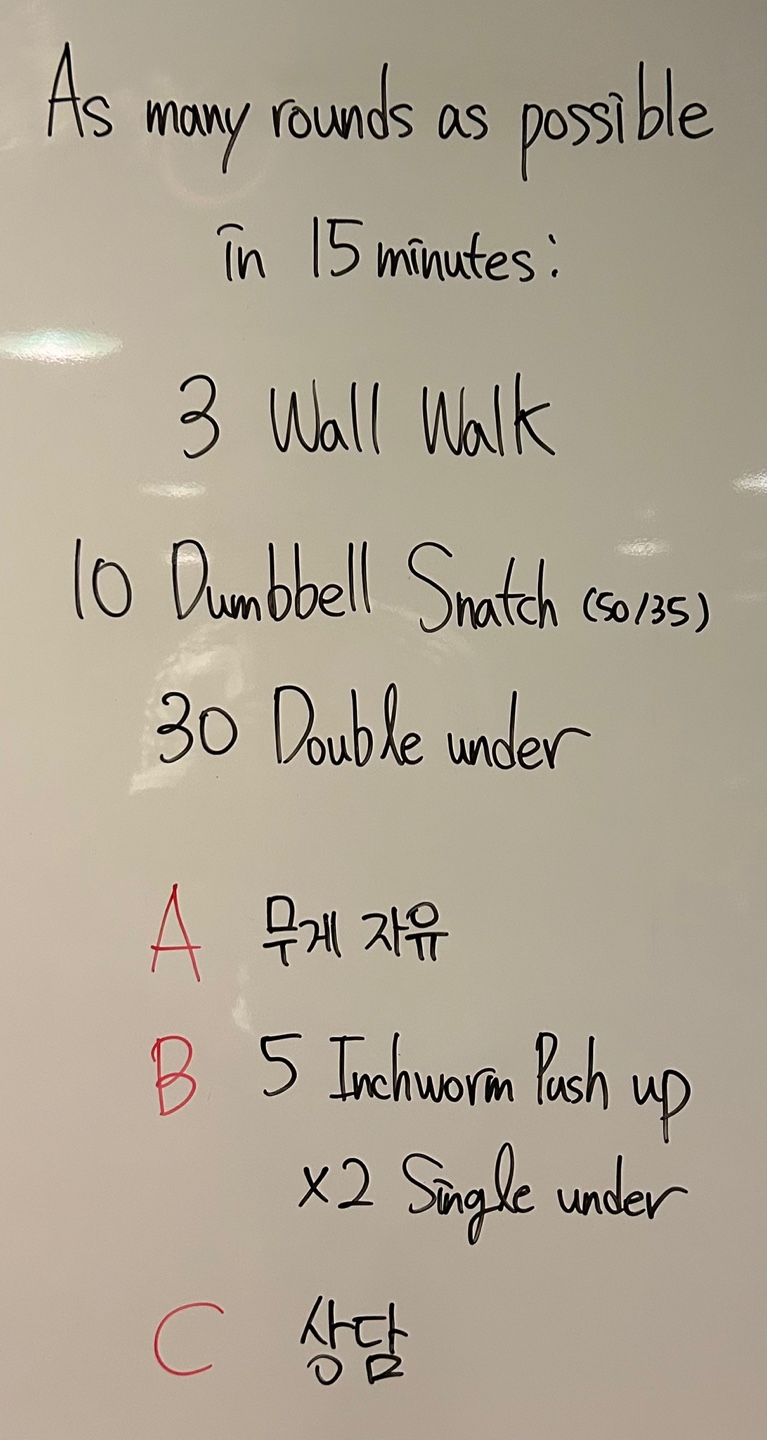 As many rounds as possible
in 15 minutes:
3 Wall Walk
10 Dumbbell Snatch (50/35)
30 Double under
A 무게 자유
B 5 Inchworm Push up
x2 Single under
C 상담